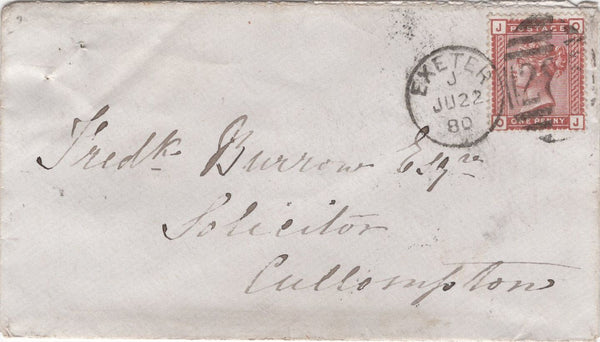 J POSTAGE O
EXETER
J
JU 22
80
O ONE PENNY J
Fredk. Burrow Esqre
Solicitor
Cullompton